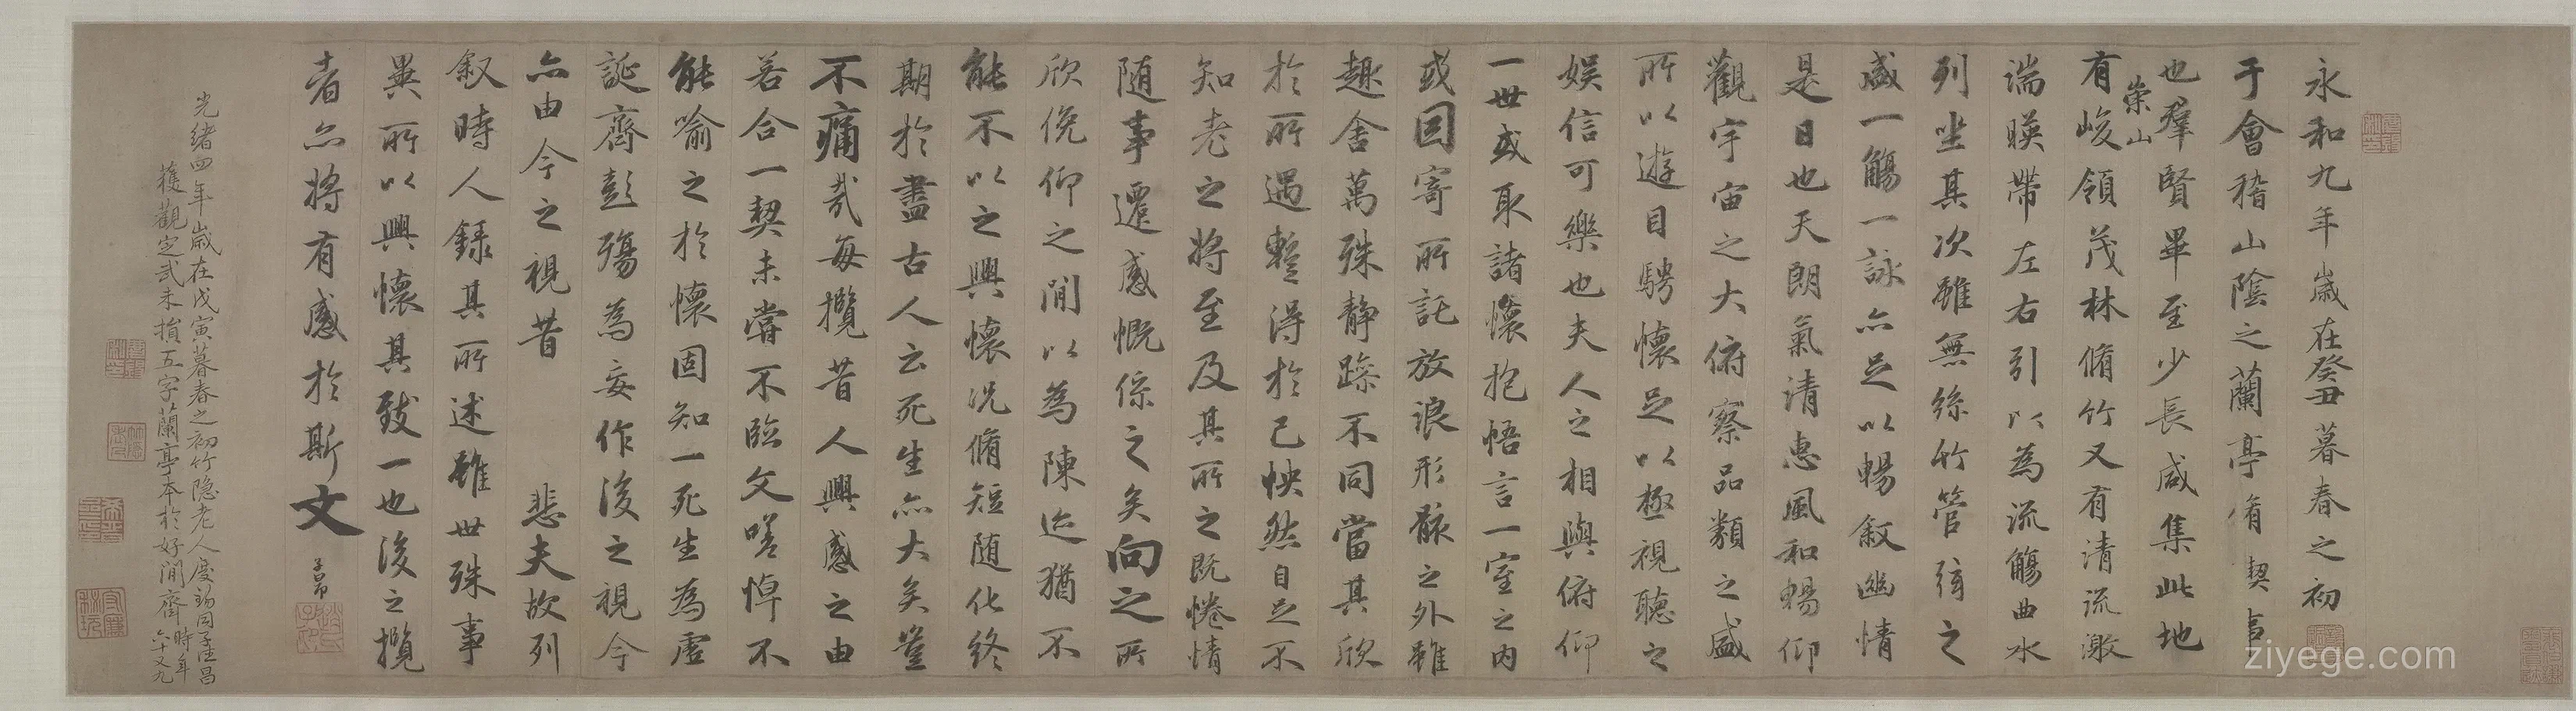 永和九年歳在癸丑暮春之初
于會稽山陰之蘭亭脩禊事
也羣賢畢至少長咸集此地
崇山
有峻領茂林脩竹又有清流激
湍暎帶左右引以為流觴曲水
列坐其次雖無絲竹管弦之
盛一觴一詠亦足以暢敘幽情
是日也天朗氣清惠風和暢仰
觀宇宙之大俯察品類之盛
所以遊目騁懷足以極視聽之
娛信可樂也夫人之相與俯仰
一世或取諸懷抱悟言一室之內
或因寄所託放浪形骸之外雖
趣舍萬殊静躁不同當其欣
於所遇暫得於己怏然自足不
知老之將至及其所之既惓情
随事遷感慨係之矣向之所
欣俛仰之閒以為陳迹猶不
能不以之興懷況脩短随化終
期於盡古人云死生亦大矣豈
不痛哉每攬昔人興感之由
若合一契未嘗不臨文嗟悼不
能喻之於懷固知一死生為虛
誕齊彭殤為妄作後之視今
亦由今之視昔 悲夫故列
叙時人録其所述雖世殊事
異所以興懷其致一也後之攬
者亦將有感於斯文
子昂
光緒四年歳在戊寅暮春之初竹隐老人度錫同子陸昌
獲觀定武未損五字蘭亭本於好閒齋時年六十又九
ziyege.com